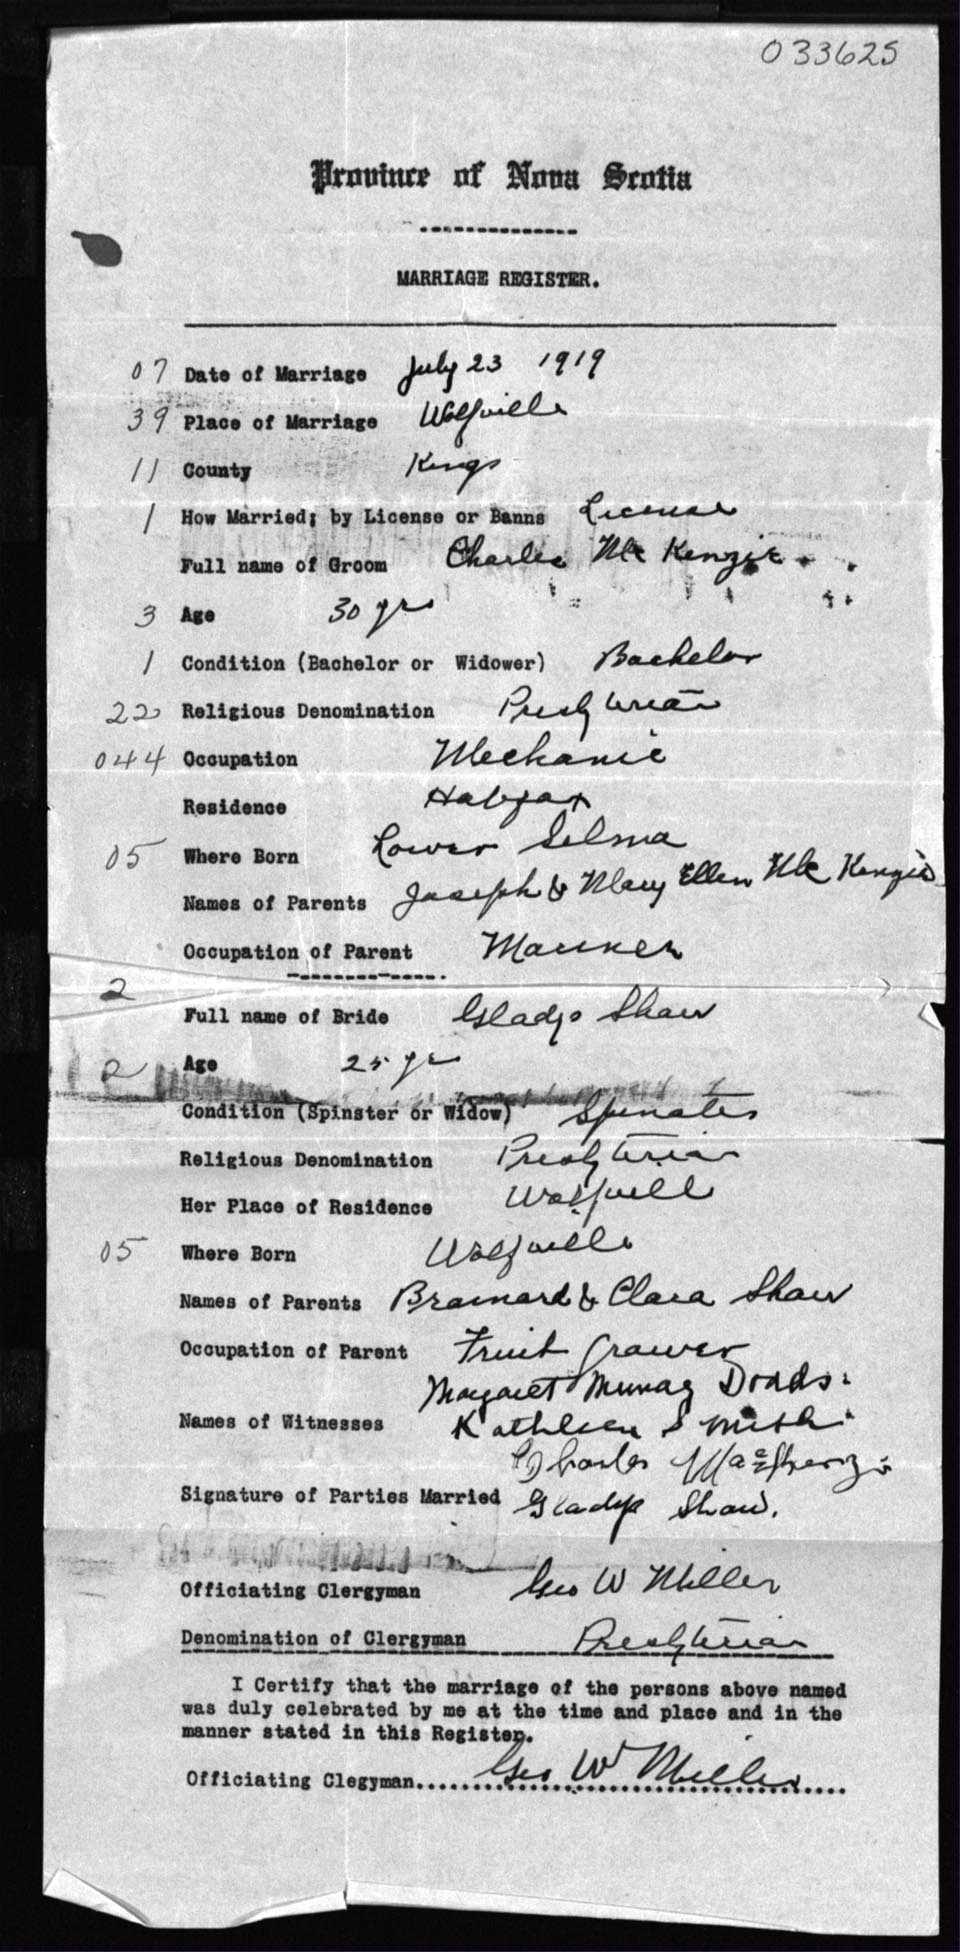 033625
Province of Nova Scotia
MARRIAGE REGISTER.
07 Date of Marriage July 23 1919
39 Place of Marriage Wolfville
11 County Kings
1 How Married; by License or Banns License
Full name of Groom Charles McKenzie
3 Age 30 yrs
1 Condition (Bachelor or Widower) Bachelor
22 Religious Denomination Presbyterian
044 Occupation Mechanic
Residence Halifax
05 Where Born Lower Selma
Names of Parents Joseph & Mary Ellen McKenzie
Occupation of Parent Mariner
2
Full name of Bride Gladys Shaw
2 Age 25 yr
Condition (Spinster or Widow) Spinster
Religious Denomination Presbyterian
Her Place of Residence Wolfville
05 Where Born Wolfville
Names of Parents Brainard & Clara Shaw
Occupation of Parent Fruit Grower
Margaret Murray Dodds.
Names of Witnesses Kathleen S
Charles
Signature of Parties Married Gladys Shaw.
Officiating Clergyman Geo W Miller
Denomination of Clergyman Presbyterian
I Certify that the marriage of the persons above named
was duly celebrated by me at the time and place and in the
manner stated in this Register.
Officiating Clegyman.... Geo W Miller